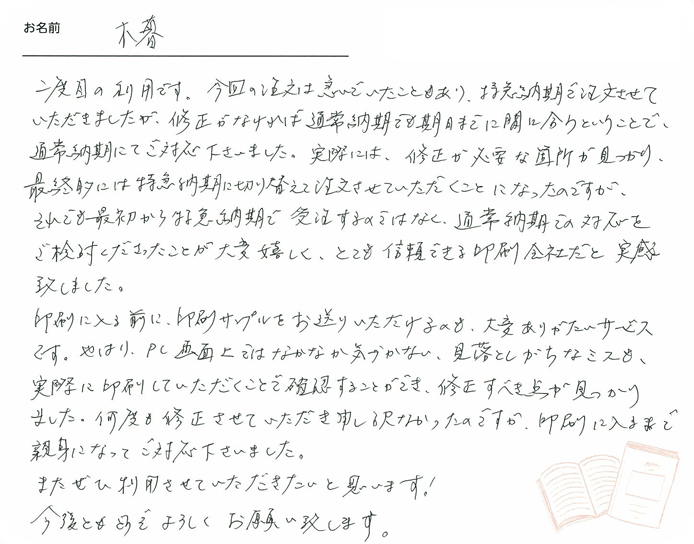 お名前 木暮
二度目の利用です。今回の注文は急いでいたこともあり、特急納期で注文させて
いただきましたが、修正がなければ通常納期でも期日までに間に合うということで、
通常納期にてご対応下さいました。実際には、修正が必要な箇所が見つかり、
最終的には特急納期に切り替えて注文させていただくことになったのですが、
それでも最初から特急納期で受注するのではなく、通常納期での対応を
ご検討くださったことが大変嬉しく、とても信頼できる印刷会社だと実感
致しました。
印刷に入る前に、印刷サンプルをお送りいただけるのも、大変ありがたいサービス
です。やはり、PC画面上ではなかなか気づかない、見落としがちなミスも、
実際に印刷していただくことで確認することができ、修正すべき点が見つかり
ました。何度も修正させていただき申し訳なかったのですが、印刷に入るまで
親身になってご対応下さいました。
またぜひ利用させていただきたいと思います!
今後ともどうぞよろしくお願い致します。